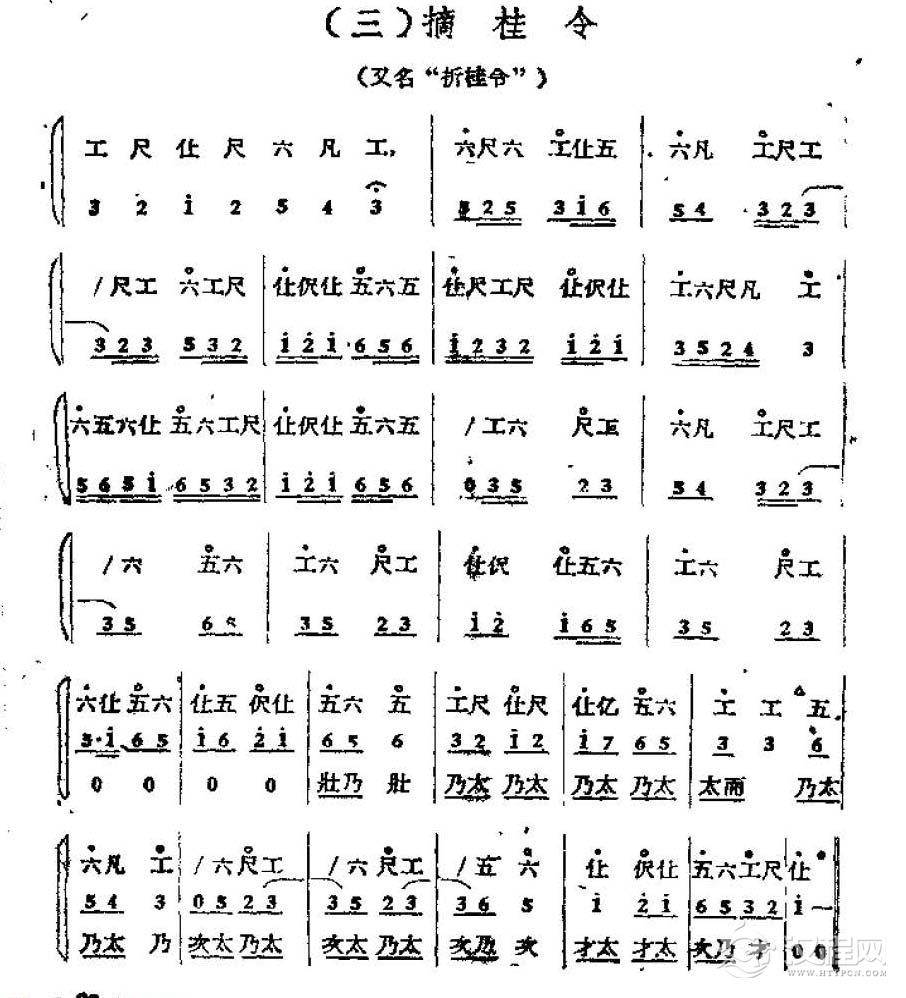 （三）摘桂令
（又名“折桂令”）
工 尺 仩 尺 六 凡 工, 六尺六 工仩五 六凡 工尺工
3 2 i 2 5 4 3 525 3i6 54 323
/尺工 六工尺 仩伬仩 五六五 仩尺工尺 仩伬仩 工六尺凡 工
323 532 i2i 656 i232 i2i 3524 3
六五六仩 五六工尺 仩伬仩 五六五 /工六 尺工 六凡 工尺工
565i 6532 i2i 656 035 23 54 323
/六 五六 工六 尺工 仩伬 仩五六 工六 尺工
35 65 35 23 i2 i65 35 23
六仩 五六 仩五 伬仩 五六 五 工尺 仩尺 仩亿 五六 工 工 五
5·i 65 i6 2i 65 6 32 i2 i7 65 3 3 6
0 0 0 0 壯乃 壯 乃太 乃太 乃太 乃太 太而 乃太
六凡 工 /六尺工 /六尺工 /五 六 仩 伬仩 五六工尺 仩
54 3 05 23 35 23 36 5 i 2i 65 32 i—
乃太 乃 次太 乃太 次太 乃太 次乃 次 才太 才太 次乃 才 0 0
WWW.HTTPCN.COM